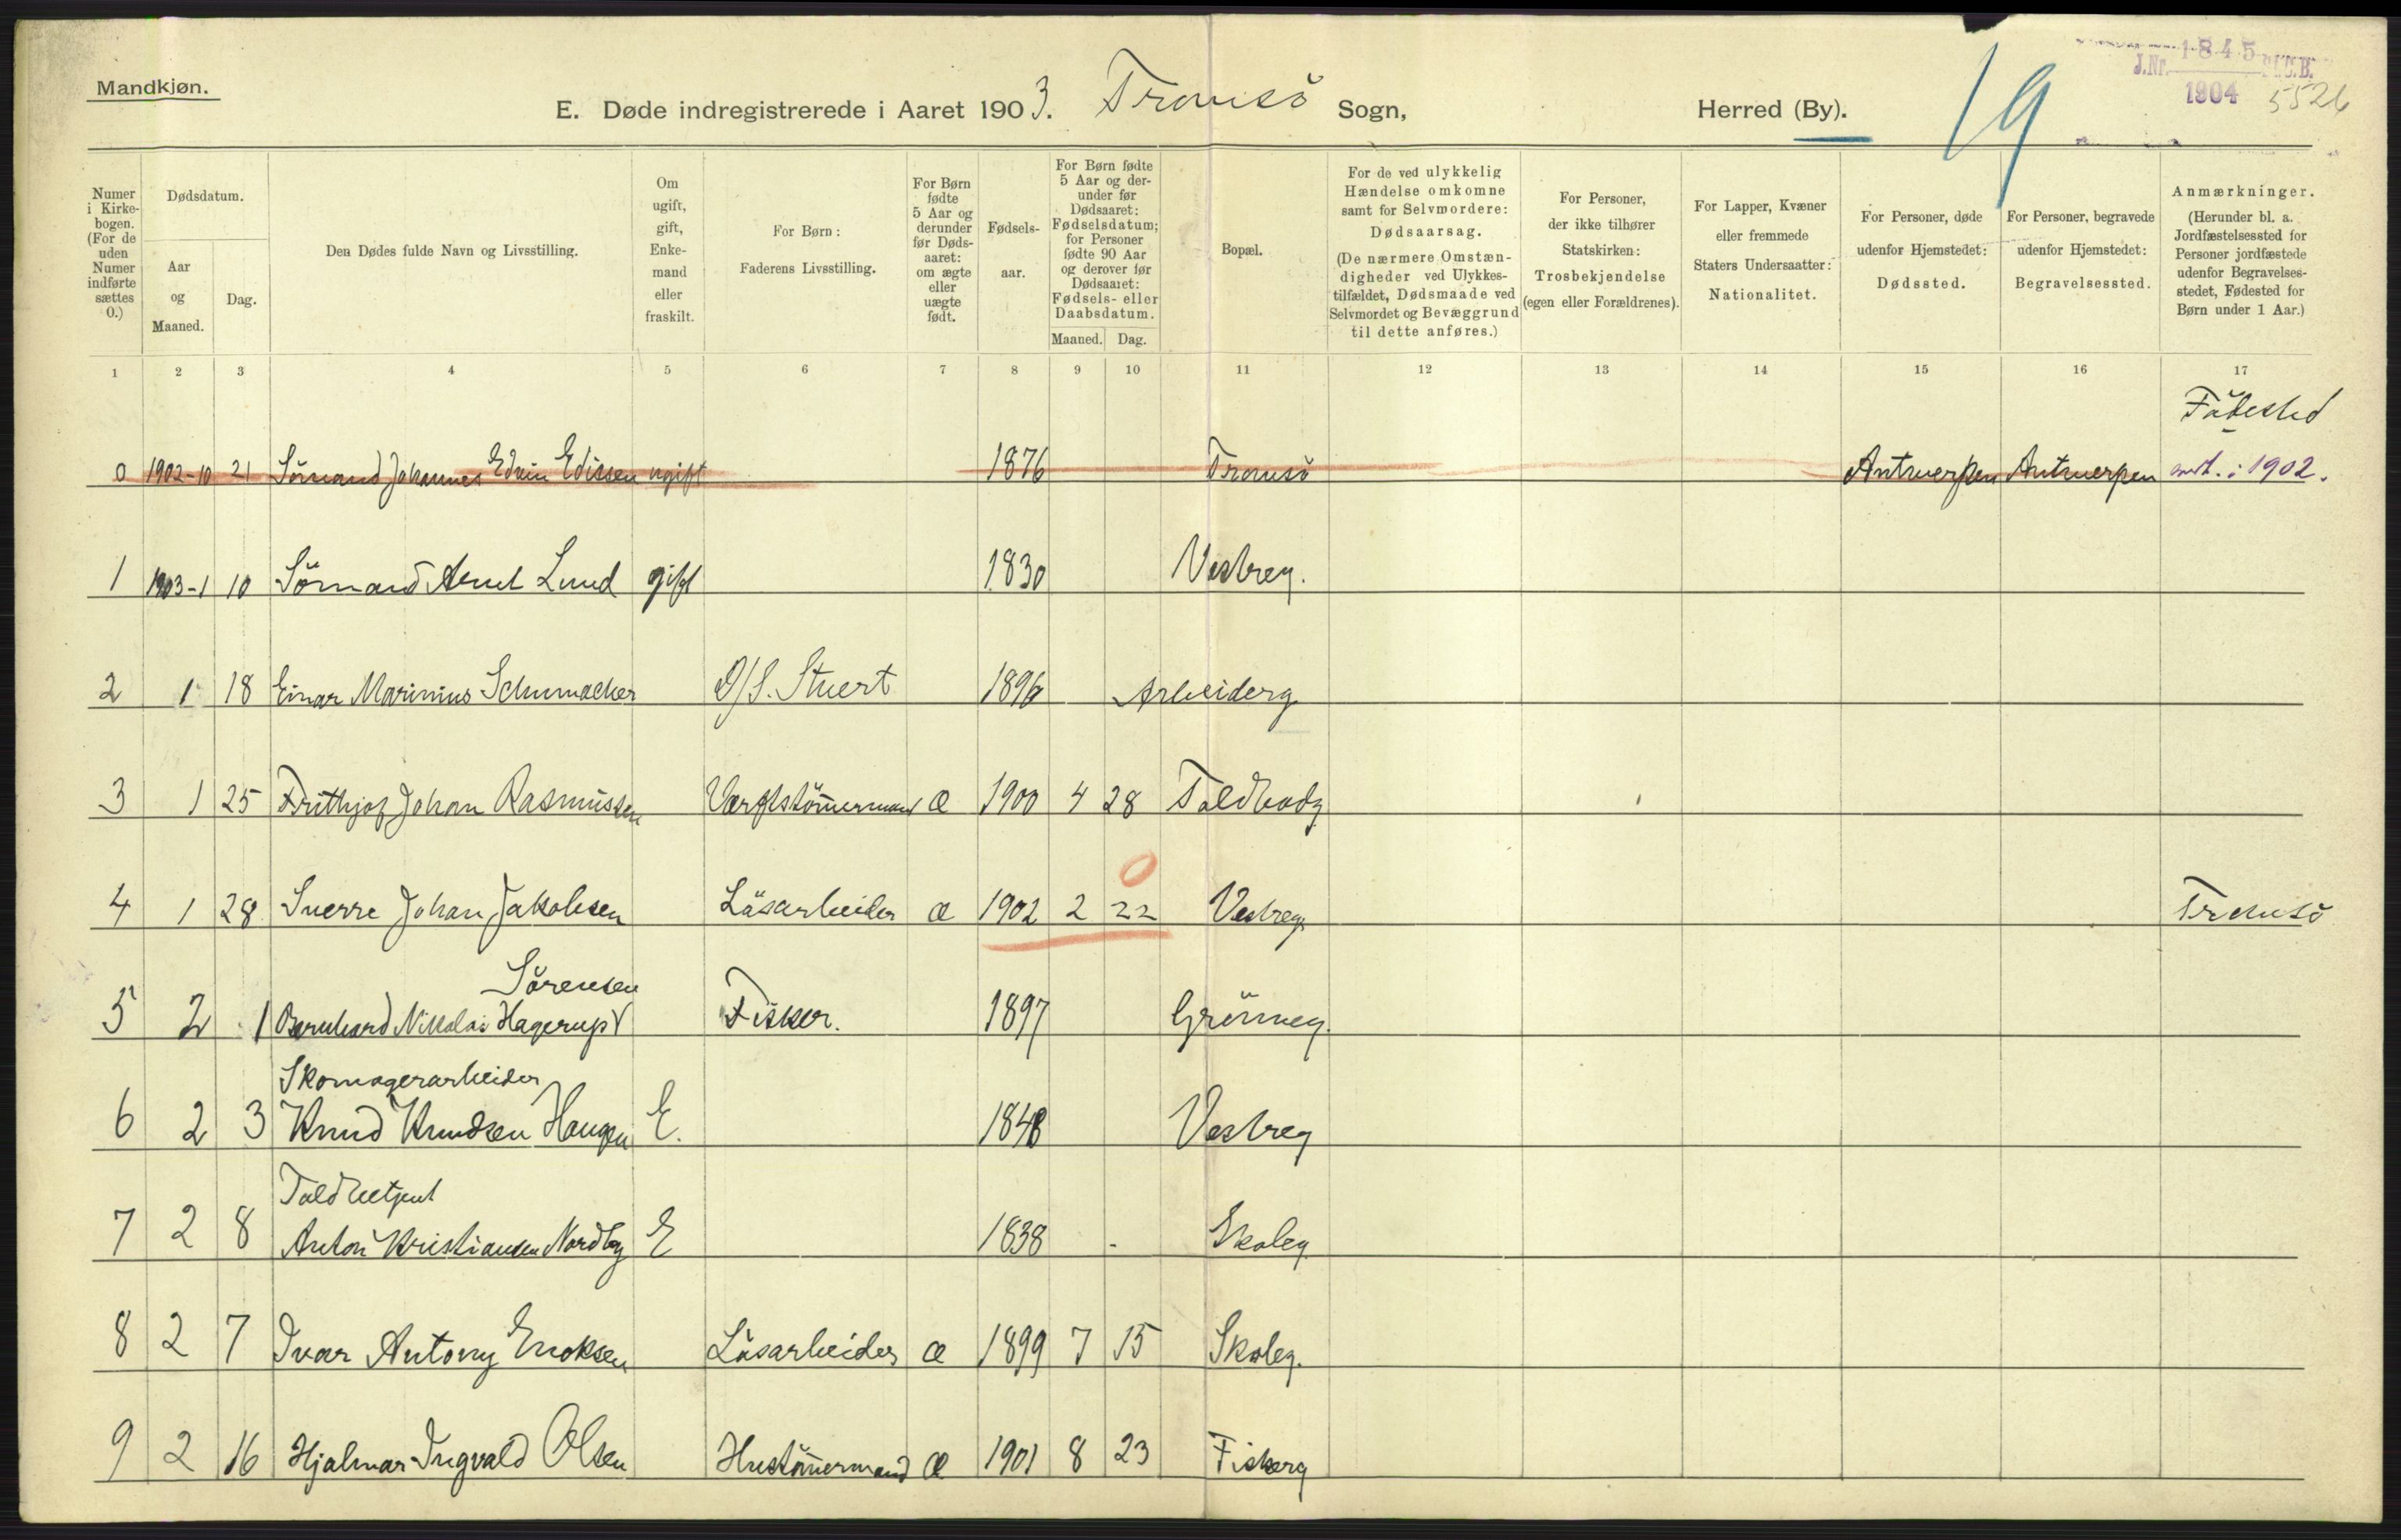 Mandkjøn.
E. Døde indregistrerede i Aaret 1903. Tromsö Sogn, Herred (By).
19
J.Nr. 1845 1904
5526
Numer i Kirkebogen. (For de uden Numer indførte sættes O.)
Dødsdatum.
Aar og Maaned.
Dag.
Den Dødes fulde Navn og Livsstilling.
Om ugift, gift, Enkemand eller fraskilt.
For Børn: Faderens Livsstilling.
For Børn fødte 5 Aar og derunder før Dødsaaret: om ægte eller uægte født.
Fødselsaar.
For Børn fødte 5 Aar og derunder før Dødsaaret: Fødselsdatum; for Personer fødte 90 Aar og derover før Dødsaaret: Fødsels- eller Daabsdatum.
Maaned. Dag.
Bopæl.
For de ved ulykkelig Hændelse omkomne samt for Selvmordere: Dødsaarsag. (De nærmere Omstændigheder ved Ulykkestilfældet, Dødsmaade ved Selvmordet og Bevæggrund til dette anføres.)
For Personer, der ikke tilhører Statskirken: Trosbekjendelse (egen eller Forældrenes).
For Lapper, Kvæner eller fremmede Staters Undersaatter: Nationalitet.
For Personer, døde udenfor Hjemstedet: Dødssted.
For Personer, begravede udenfor Hjemstedet: Begravelsessted.
Anmærkninger. (Herunder bl. a. Jordfæstelsessted for Personer jordfæstede udenfor Begravelsesstedet, Fødested for Børn under 1 Aar.)
1 2 3 4 5 6 7 8 9 10 11 12 13 14 15 16 17
Födested
0 1902-10 21 Sömand Johannes Edvin Edissen ugift 1876 Tromsö Antwerpen Antwerpen i 1902.
1 1903-1 10 Sömand Arnt Lund gift 1830 Vestreg.
2 1 18 Einar Marinius Schumacher D/S. Stuert 1896 Arbeiderg
3 1 25 Frithjof Johan Rasmussen Værftstömermand Æ 1900 4 28 Toldbodg
0
4 1 28 Sverre Johan Jakobsen Lösarbeider Æ 1902 2 22 Vestreg. Tromsö
Sörensen
5 2 1 Bernhard Nikolai Hagerup Fisker. 1897 Grönneg.
Skomagerarbeider
6 2 3 Knud Knudsen Haugen E. 1848 Vestreg
Toldbetjent
7 2 8 Anton Kristiansen Nordby E 1838 Skoleg
8 2 7 Ivar Antony Enoksen Lösarbeider Æ 1899 7 15 Skoleg.
9 2 16 Hjalmar Ingvald Olsen Hustömermand Æ 1901 8 23 Fiskerg